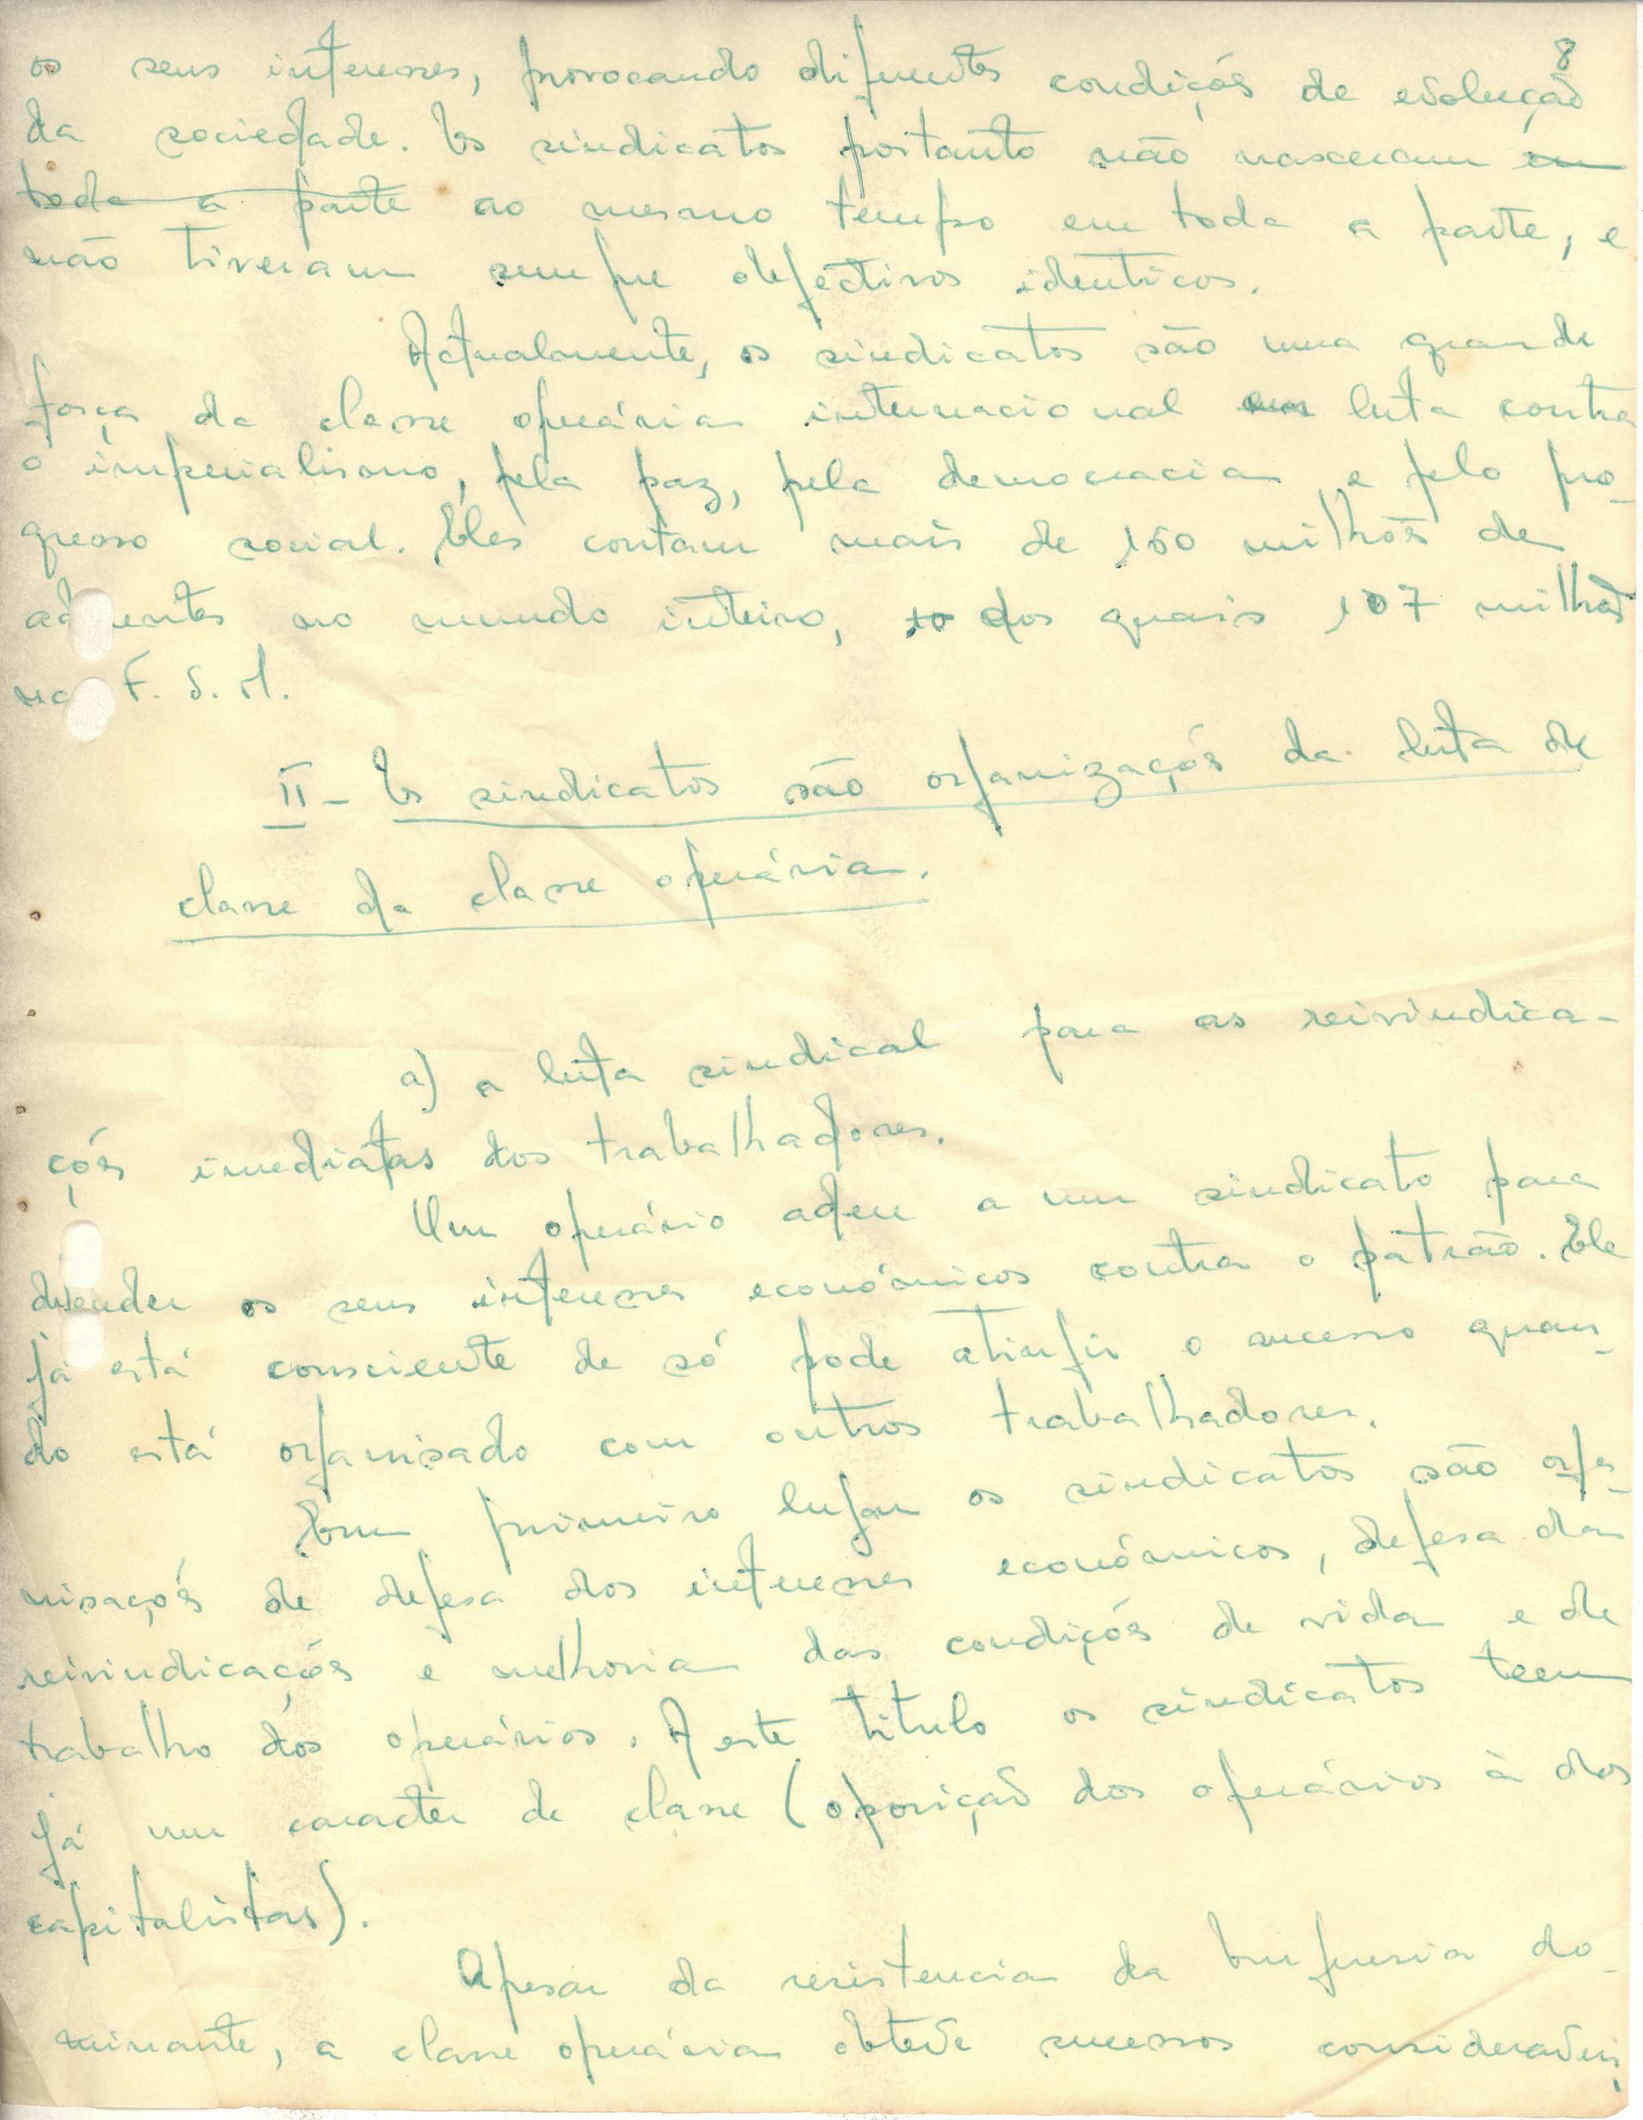 8
os seus interesses, provocando diferentes condições de evolução
da sociedade. Os sindicatos portanto não nasceram em
toda a parte ao mesmo tempo em toda a parte, e
não tiveram sempre objectivos identicos.
Actualmente, os sindicatos são uma grande
força da classe operária internacional em luta contra
o imperialismo, pela paz, pela democracia e pelo pro-
gresso social. Eles contam mais de 150 milhões de
aderentes no mundo inteiro, dos quais 107 milhões
na F. S. M.
II - Os sindicatos são organizações da luta de
classe da classe operária.
a) a luta sindical para as reivindica-
ções imediatas dos trabalhadores.
Um operário adere a um sindicato para
defender os seus interesses económicos contra o patrão. Ele
já está consciente de só pode atingir o sucesso quan-
do está organisado com outros trabalhadores.
Em primeiro lugar os sindicatos são orga-
nisações de defesa dos interesses económicos, defesa das
reivindicações e melhoria das condições de vida e de
trabalho dos operários. A este titulo os sindicatos teem
já um caracter de classe (oposição dos operários à dos
capitalistas).
Apesar da resistencia da burguesia do-
minante, a classe operária obteve sucessos consideraveis,